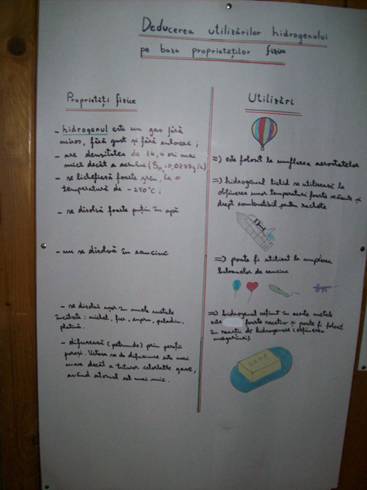 Deducerea utilizărilor hidrogenului
pe baza proprietăților fizice
Proprietăți fizice
- hidrogenul este un gaz fără
miros, fără gust și fără culoare;
- are densitatea de 14,4 ori mai
mică decât a aerului
- se lichefiază foarte greu, la o
temperatură de -250°C;
- se dizolvă foarte puțin în apă
- nu se dizolvă în cauciuc
- se dizolvă ușor în unele metale
încălzite: nichel, fier, cupru, paladiu,
platină.
- difuzează (pătrunde) prin pereții
poroși. Viteza sa de difuziune este mai
mare decât a tuturor celorlalte gaze,
având atomul cel mai mic.
Utilizări
=) Este folosit la umflarea aerostatelor
=) hidrogenul lichid se utilizează la
obținerea unor temperaturi foarte scăzute și
drept combustibil pentru rachete
=) poate fi utilizat la umplerea
baloanelor de cauciuc
=) hidrogenul reținut în acele metale
este foarte reactiv și poate fi folosit
în reacții de hidrogenare (obținerea
margarinei)